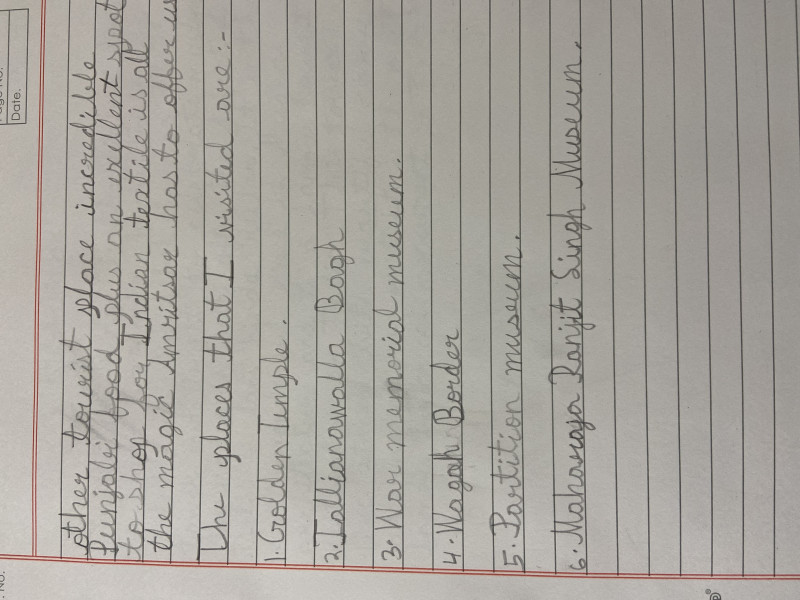 Page No.
Date.
other tourist place incredible
Punjabi food plus an exellent spot
to shop for Indian textile is all
the magik Amritsar has to offer us
The places that I visited are :-
1. Golden Temple.
2. Jallianawalla Bagh
3. War memorial museum.
4. Wagah Border
5. Partition museum.
6. Maharaja Ranjit Singh Museum.
No.